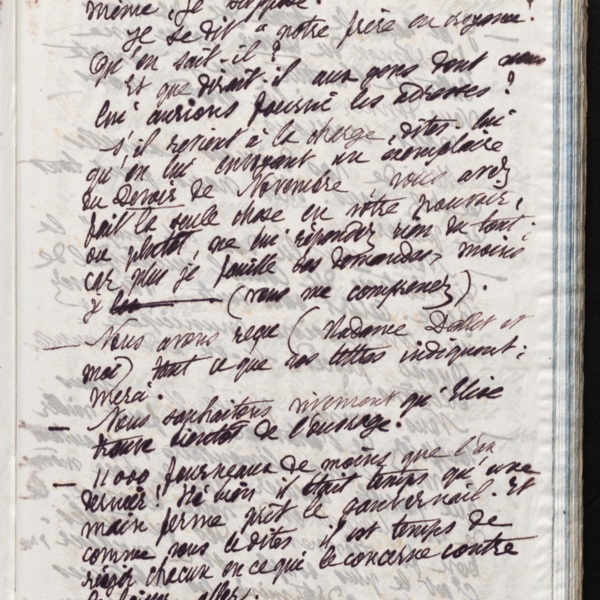 même, je suppose.
Je se dit à notre frère en croyance.
Qu'en sait-il ?
Et que dirait-il aux gens dont nous
lui aurions fourni les adresses ?
S'il revient à la charge, dites-lui
qu'en lui envoyant un exemplaire
du Devoir de Novembre vous avez
fait la seule chose en votre pouvoir,
ou plutôt ne lui répondez rien du tout ;
car plus je fouille ces demandes, moins
je (vous me comprenez).
— Nous avons reçu (Madame Dallet et
moi) tout ce que vos lettres indiquent ;
merci.
— Nous souhaitons vivement qu'Elise
trouve bientôt de l'ouvrage.
— 11000 fourneaux de moins que l'an
dernier ! Hé bien il était temps qu'une
main ferme prît le gouvernail. Et
comme vous le dites il est temps de
réagir chacun en ce qui le concerne contre
le laisser aller.